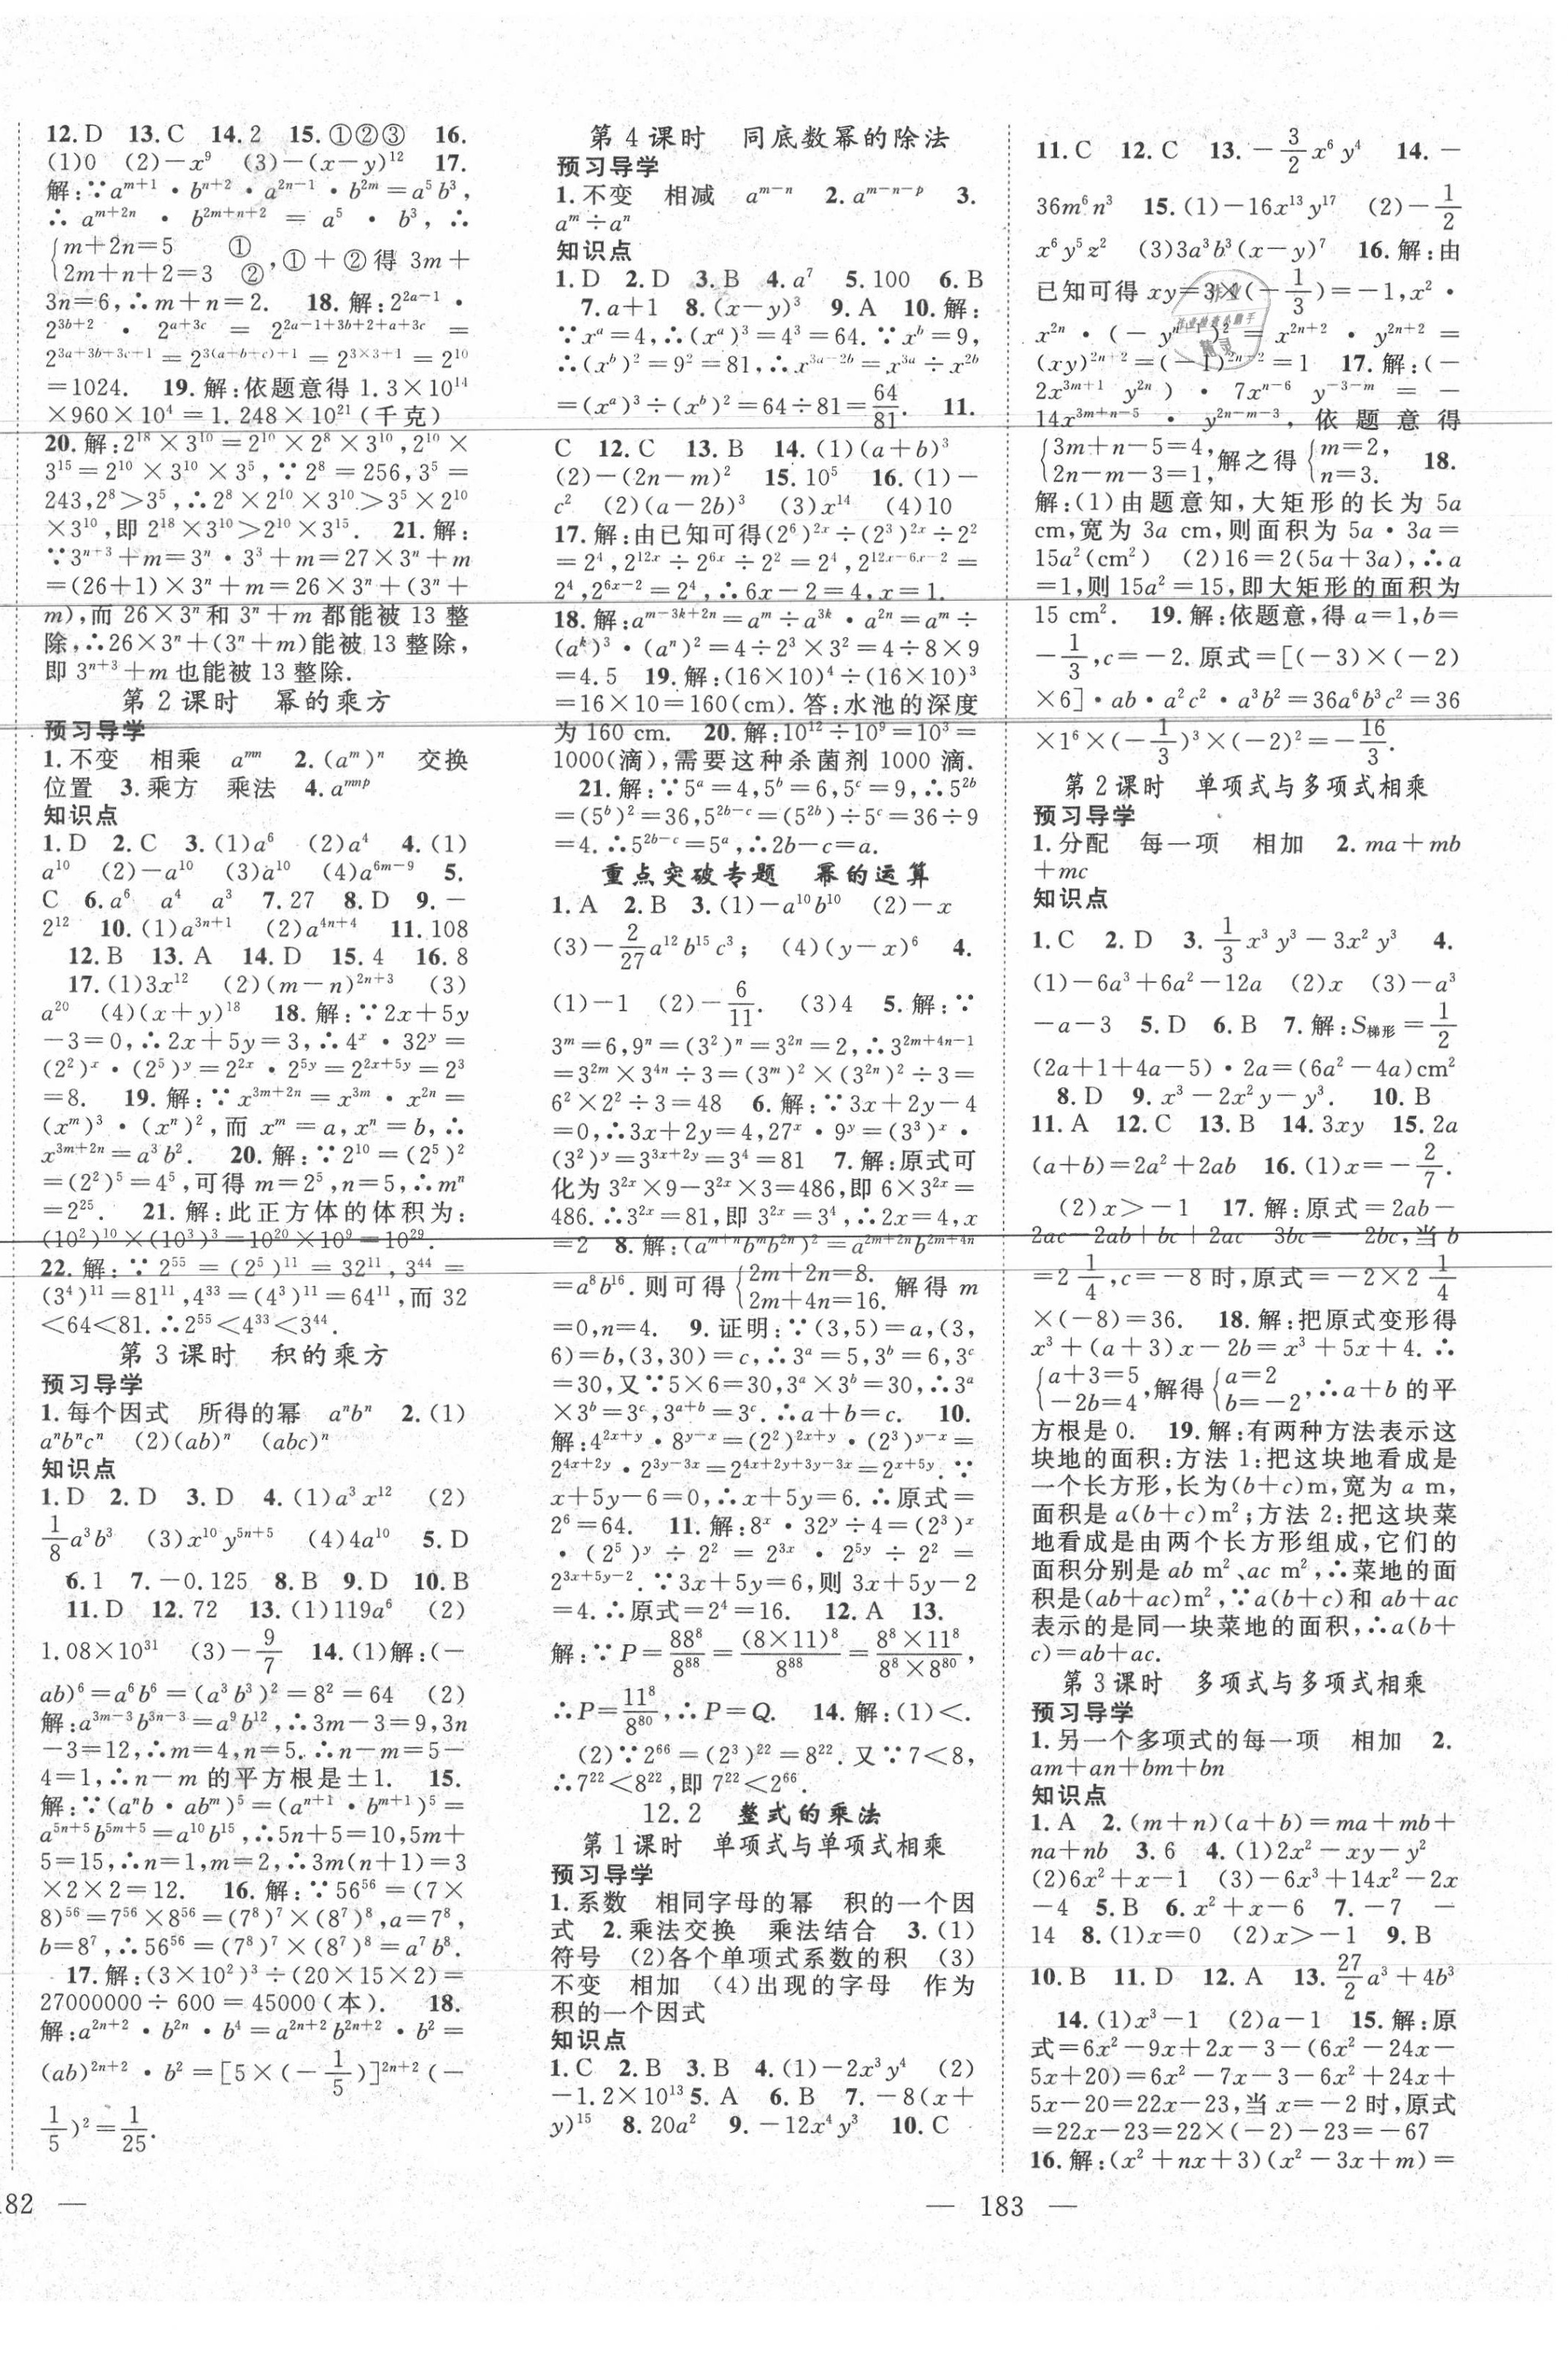 12.D 13.C 14.2 15.①②③ 16.
(1)0 (2)－x⁹ (3)－(x－y)¹² 17.
解:∵a^{m+1}·b^{n+2}·a^{2n-1}·b^{2m}=a⁵b³,
∴a^{m+2n}·b^{2m+n+2}=a⁵·b³,∴
{m+2n=5 ① 2m+n+2=3 ②,①+②得 3m+
3n=6,∴m+n=2. 18.解:2^{2a-1}·
2^{3b+2}·2^{a+3c}=2^{2a-1+3b+2+a+3c}=
2^{3a+3b+3c+1}=2^{3(a+b+c)+1}=2^{3×3+1}=2¹⁰
=1024. 19.解:依题意得 1.3×10¹⁴
×960×10⁴=1.248×10²¹(千克)
20.解:2¹⁸×3¹⁰=2¹⁰×2⁸×3¹⁰,2¹⁰×
3¹⁵=2¹⁰×3¹⁰×3⁵,∵2⁸=256,3⁵=
243,2⁸>3⁵,∴2⁸×2¹⁰×3¹⁰>3⁵×2¹⁰
×3¹⁰,即 2¹⁸×3¹⁰>2¹⁰×3¹⁵. 21.解:
∵3^{n+3}+m=3ⁿ·3³+m=27×3ⁿ+m
=(26+1)×3ⁿ+m=26×3ⁿ+(3ⁿ+
m),而 26×3ⁿ和 3ⁿ+m 都能被 13 整
除,∴26×3ⁿ+(3ⁿ+m)能被 13 整除,
即 3^{n+3}+m 也能被 13 整除.
第 2 课时 幂的乘方
预习导学
1.不变 相乘 a^{mn} 2.(a^m)^n 交换
位置 3.乘方 乘法 4.a^{mnp}
知识点
1.D 2.C 3.(1)a⁶ (2)a⁴ 4.(1)
a¹⁰ (2)－a¹⁰ (3)a¹⁰ (4)a^{6m-9} 5.
C 6.a⁶ a⁴ a³ 7.27 8.D 9.－
2¹² 10.(1)a^{3n+1} (2)a^{4n+4} 11.108
12.B 13.A 14.D 15.4 16.8
17.(1)3x¹² (2)(m－n)^{2n+3} (3)
a²⁰ (4)(x+y)¹⁸ 18.解:∵2x+5y
－3=0,∴2x+5y=3,∴4^x·32^y=
(2²)^x·(2⁵)^y=2^{2x}·2^{5y}=2^{2x+5y}=2³
=8. 19.解:∵x^{3m+2n}=x^{3m}·x^{2n}=
(x^m)³·(x^n)²,而 x^m=a,x^n=b,∴
x^{3m+2n}=a³b². 20.解:∵2¹⁰=(2⁵)²
=(2²)⁵=4⁵,可得 m=2⁵,n=5,∴m^n
=2²⁵. 21.解:此正方体的体积为:
(10²)¹⁰×(10³)³=10²⁰×10⁹=10²⁹.
22.解:∵2⁵⁵=(2⁵)¹¹=32¹¹,3⁴⁴=
(3⁴)¹¹=81¹¹,4³³=(4³)¹¹=64¹¹,而 32
<64<81.∴2⁵⁵<4³³<3⁴⁴.
第 3 课时 积的乘方
预习导学
1.每个因式 所得的幂 aⁿbⁿ 2.(1)
aⁿbⁿcⁿ (2)(ab)ⁿ (abc)ⁿ
知识点
1.D 2.D 3.D 4.(1)a³x¹² (2)
1/8 a³b³ (3)x¹⁰y^{5n+5} (4)4a¹⁰ 5.D
6.1 7.－0.125 8.B 9.D 10.B
11.D 12.72 13.(1)119a⁶ (2)
1.08×10³¹ (3)－9/7 14.(1)解:(－
ab)⁶=a⁶b⁶=(a³b³)²=8²=64 (2)
解:a^{3m-3}b^{3n-3}=a⁹b¹²,∴3m－3=9,3n
－3=12,∴m=4,n=5.∴n－m=5－
4=1,∴n－m 的平方根是±1. 15.
解:∵(aⁿb·ab^m)⁵=(a^{n+1}·b^{m+1})⁵=
a^{5n+5}b^{5m+5}=a¹⁰b¹⁵,∴5n+5=10,5m+
5=15,∴n=1,m=2,∴3m(n+1)=3
×2×2=12. 16.解:∵56⁵⁶=(7×
8)⁵⁶=7⁵⁶×8⁵⁶=(7⁸)⁷×(8⁷)⁸,a=7⁸,
b=8⁷,∴56⁵⁶=(7⁸)⁷×(8⁷)⁸=a⁷b⁸.
17.解:(3×10²)³÷(20×15×2)=
27000000÷600=45000(本). 18.
解:a^{2n+2}·b^{2n}·b⁴=a^{2n+2}b^{2n+2}·b²=
(ab)^{2n+2}·b²=[5×(－1/5)]^{2n+2}(－
1/5)²=1/25.
182 —
第 4 课时 同底数幂的除法
预习导学
1.不变 相减 a^{m-n} 2.a^{m-n-p} 3.
a^m÷a^n
知识点
1.D 2.D 3.B 4.a⁷ 5.100 6.B
7.a+1 8.(x－y)³ 9.A 10.解:
∵x^a=4,∴(x^a)³=4³=64.∵x^b=9,
∴(x^b)²=9²=81,∴x^{3a-2b}=x^{3a}÷x^{2b}
=(x^a)³÷(x^b)²=64÷81=64/81. 11.
C 12.C 13.B 14.(1)(a+b)³
(2)－(2n－m)² 15.10⁵ 16.(1)－
c² (2)(a－2b)³ (3)x¹⁴ (4)10
17.解:由已知可得(2⁶)^{2x}÷(2³)^{2x}÷2²
=2⁴,2^{12x}÷2^{6x}÷2²=2⁴,2^{12x-6x-2}=
2⁴,2^{6x-2}=2⁴,∴6x－2=4,x=1.
18.解:a^{m-3k+2n}=a^m÷a^{3k}·a^{2n}=a^m÷
(a^k)³·(a^n)²=4÷2³×3²=4÷8×9
=4.5 19.解:(16×10)⁴÷(16×10)³
=16×10=160(cm).答:水池的深度
为 160 cm. 20.解:10¹²÷10⁹=10³=
1000(滴),需要这种杀菌剂 1000 滴.
21.解:∵5^a=4,5^b=6,5^c=9,∴5^{2b}
=(5^b)²=36,5^{2b-c}=(5^{2b})÷5^c=36÷9
=4.∴5^{2b-c}=5^a,∴2b－c=a.
重点突破专题 幂的运算
1.A 2.B 3.(1)－a¹⁰b¹⁰ (2)－x
(3)－2/27 a¹²b¹⁵c³; (4)(y－x)⁶ 4.
(1)－1 (2)－6/11. (3)4 5.解:∵
3^m=6,9^n=(3²)^n=3^{2n}=2,∴3^{2m+4n-1}
=3^{2m}×3^{4n}÷3=(3^m)²×(3^{2n})²÷3=
6²×2²÷3=48 6.解:∵3x+2y－4
=0,∴3x+2y=4,27^x·9^y=(3³)^x·
(3²)^y=3^{3x+2y}=3⁴=81 7.解:原式可
化为 3^{2x}×9－3^{2x}×3=486,即 6×3^{2x}=
486.∴3^{2x}=81,即 3^{2x}=3⁴,∴2x=4,x
=2 8.解:(a^{m+n}b^m b^{2n})²=a^{2m+2n}b^{2m+4n}
=a⁸b¹⁶.则可得{2m+2n=8. 2m+4n=16. 解得 m
=0,n=4. 9.证明:∵(3,5)=a,(3,
6)=b,(3,30)=c,∴3^a=5,3^b=6,3^c
=30,又∵5×6=30,3^a×3^b=30,∴3^a
×3^b=3^c,3^{a+b}=3^c.∴a+b=c. 10.
解:4^{2x+y}·8^{y-x}=(2²)^{2x+y}·(2³)^{y-x}=
2^{4x+2y}·2^{3y-3x}=2^{4x+2y+3y-3x}=2^{x+5y}.∵
x+5y－6=0,∴x+5y=6.∴原式=
2⁶=64. 11.解:8^x·32^y÷4=(2³)^x
·(2⁵)^y÷2²=2^{3x}·2^{5y}÷2²=
2^{3x+5y-2}.∵3x+5y=6,则 3x+5y－2
=4.∴原式=2⁴=16. 12.A 13.
解:∵P=88⁸/8⁸⁸=(8×11)⁸/8⁸⁸=8⁸×11⁸/8⁸×8⁸⁰,
∴P=11⁸/8⁸⁰,∴P=Q. 14.解:(1)<.
(2)∵2⁶⁶=(2³)²²=8²².又∵7<8,
∴7²²<8²²,即 7²²<2⁶⁶.
12.2 整式的乘法
第 1 课时 单项式与单项式相乘
预习导学
1.系数 相同字母的幂 积的一个因
式 2.乘法交换 乘法结合 3.(1)
符号 (2)各个单项式系数的积 (3)
不变 相加 (4)出现的字母 作为
积的一个因式
知识点
1.C 2.B 3.B 4.(1)－2x³y⁴ (2)
－1.2×10¹³ 5.A 6.B 7.－8(x+
y)¹⁵ 8.20a² 9.－12x⁴y³ 10.C
— 183 —
11.C 12.C 13.－3/2 x⁶y⁴ 14.－
36m⁶n³ 15.(1)－16x¹³y¹⁷ (2)－1/2
x⁶y⁵z² (3)3a³b³(x－y)⁷ 16.解:由
已知可得 xy=3×(－1/3)=－1,x²·
x^{2n}·(－y^{n+1})²=x^{2n+2}·y^{2n+2}=
(xy)^{2n+2}=(－1)^{2n+2}=1 17.解:(－
2x^{3m+1} y^{2n})·7x^{n-6} y^{-3-m}=－
14x^{3m+n-5}·y^{2n-m-3},依题意得
{3m+n－5=4, 2n－m－3=1,解之得{m=2, n=3. 18.
解:(1)由题意知,大矩形的长为 5a
cm,宽为 3a cm,则面积为 5a·3a=
15a²(cm²) (2)16=2(5a+3a),∴a
=1,则 15a²=15,即大矩形的面积为
15 cm². 19.解:依题意,得 a=1,b=
－1/3,c=－2.原式=[(－3)×(－2)
×6]·ab·a²c²·a³b²=36a⁶b³c²=36
×1⁶×(－1/3)³×(－2)²=－16/3.
第 2 课时 单项式与多项式相乘
预习导学
1.分配 每一项 相加 2.ma+mb
+mc
知识点
1.C 2.D 3.1/3 x³y³－3x²y³ 4.
(1)－6a³+6a²－12a (2)x (3)－a³
－a－3 5.D 6.B 7.解:S梯形=1/2
(2a+1+4a－5)·2a=(6a²－4a)cm²
8.D 9.x³－2x²y－y³. 10.B
11.A 12.C 13.B 14.3xy 15.2a
(a+b)=2a²+2ab 16.(1)x=－2/7.
(2)x>－1 17.解:原式=2ab－
2ac－2ab+bc+2ac－3bc=－2bc,当 b
=2 1/4,c=－8 时,原式=－2×2 1/4
×(－8)=36. 18.解:把原式变形得
x³+(a+3)x－2b=x³+5x+4.∴
{a+3=5 －2b=4,解得{a=2 b=－2,∴a+b 的平
方根是 0. 19.解:有两种方法表示这
块地的面积:方法 1:把这块地看成是
一个长方形,长为(b+c)m,宽为 a m,
面积是 a(b+c)m²;方法 2:把这块菜
地看成是由两个长方形组成,它们的
面积分别是 ab m²、ac m²,∴菜地的面
积是(ab+ac)m²,∵a(b+c)和 ab+ac
表示的是同一块菜地的面积,∴a(b+
c)=ab+ac.
第 3 课时 多项式与多项式相乘
预习导学
1.另一个多项式的每一项 相加 2.
am+an+bm+bn
知识点
1.A 2.(m+n)(a+b)=ma+mb+
na+nb 3.6 4.(1)2x²－xy－y²
(2)6x²+x－1 (3)－6x³+14x²－2x
－4 5.B 6.x²+x－6 7.－7 －
14 8.(1)x=0 (2)x>－1 9.B
10.B 11.D 12.A 13.27/2 a³+4b³
14.(1)x³－1 (2)a－1 15.解:原
式=6x²－9x+2x－3－(6x²－24x－
5x+20)=6x²－7x－3－6x²+24x+
5x－20=22x－23,当 x=－2 时,原式
=22x－23=22×(－2)－23=－67
16.解:(x²+nx+3)(x²－3x+m)=